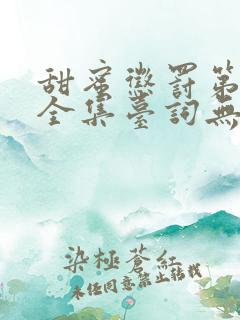 甜蜜懲罰第
全集臺詞無
染極蒼紅
未经同意禁止转载